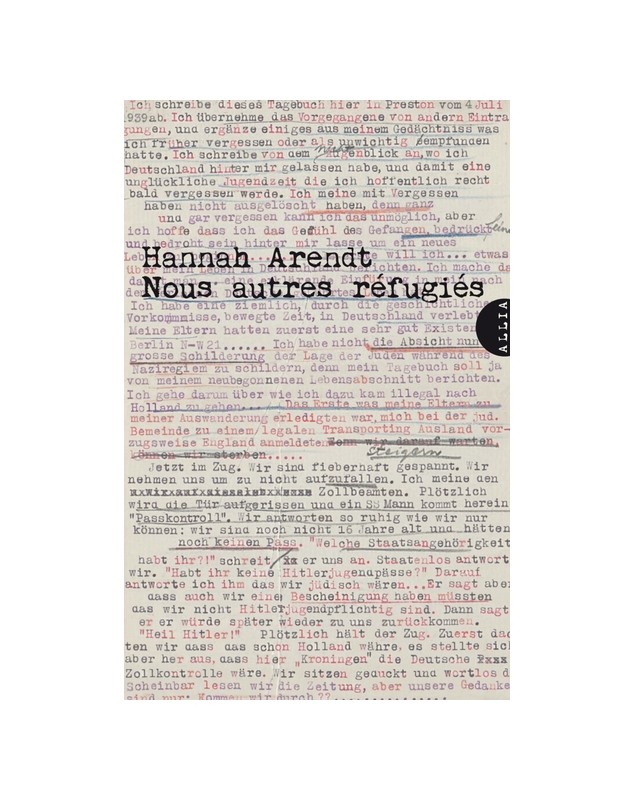 Ich schreibe dieses Tagebuch hier in Preston vom 4 Juli
939ab. Ich übernehme das Vorgegangene von andern Eintra
gungen, und ergänze einiges aus meinem Gedächtniss was
ich früher vergessen oder als unwichtig empfunden
hatte. Ich schreibe von dem Augenblick an, wo ich
Deutschland hinter mir gelassen habe, und damit eine
unglückliche Jugendzeit die ich hoffentlich recht
bald vergessen werde. Ich meine mit Vergessen
haben nicht ausgelöscht haben, denn ganz
und gar vergessen kann ich das unmöglich, aber
ich hoffe dass ich das Gefühl des Gefangen, bedrückt
und bedroht sein hinter mir lasse um ein neues
Hannah Arendt
Nous autres réfugiés
ALLIA
Ich habe eine ziemlich, durch die geschichtliche
Vorkommnisse, bewegte Zeit, in Deutschland verlebt
Meine Eltern hatten zuerst eine sehr gut Existen
Berlin N-W21...... Ich habe nicht die Absicht nun
grosse Schilderung der Lage der Juden während des
Naziregiem zu schildern, denn mein Tagebuch soll ja
von meinem neubegonnenen Lebensabschnitt berichten.
Ich gehe darum über wie ich dazu kam illegal nach
Holland zu gehen.... Das Erste was meine Eltern zu
meiner Auswanderung erledigten war, mich bei der jüd.
Gemeinde zu einem/legalen Transporting Ausland vor-
zugsweise England anmeldeten Wenn wir darauf warten,
können wir sterben.....
steigern
Jetzt im Zug. Wir sind fieberhaft gespannt. Wir
nehmen uns um zu nicht aufzufallen. Ich meine den
Zollbeamten. Plötzlich
wird die Tür aufgerissen und ein SS Mann kommt herein
"Passkontroll". Wir antworten so ruhig wie wir nur
können: wir sind noch nicht 16 Jahre alt und hätten
noch keinen Pass. "Welche Staatsangehörigkeit
habt ihr?!" schreit er uns an. Staatenlos antwort
wir. "Habt ihr keine Hitlerjugendpässe?" Darauf
antworte ich ihm das wir jüdisch wären...Er sagt aber
dass auch wir eine Bescheinigung haben müssten
das wir nicht Hitlerjugendpflichtig sind. Dann sagt
er er würde später wieder zu uns zurückkommen.
"Heil Hitler!" Plötzlich hält der Zug. Zuerst dac
ten wir dass das schon Holland währe, es stellte sich
aber her aus, dass hier „Kroningen" die Deutsche
Zollkontrolle wäre. Wir sitzen geduckt und wortlos d
Scheinbar lesen wir die Zeitung, aber unsere Gedanke
sind nur: Kommen wir durch ??...............